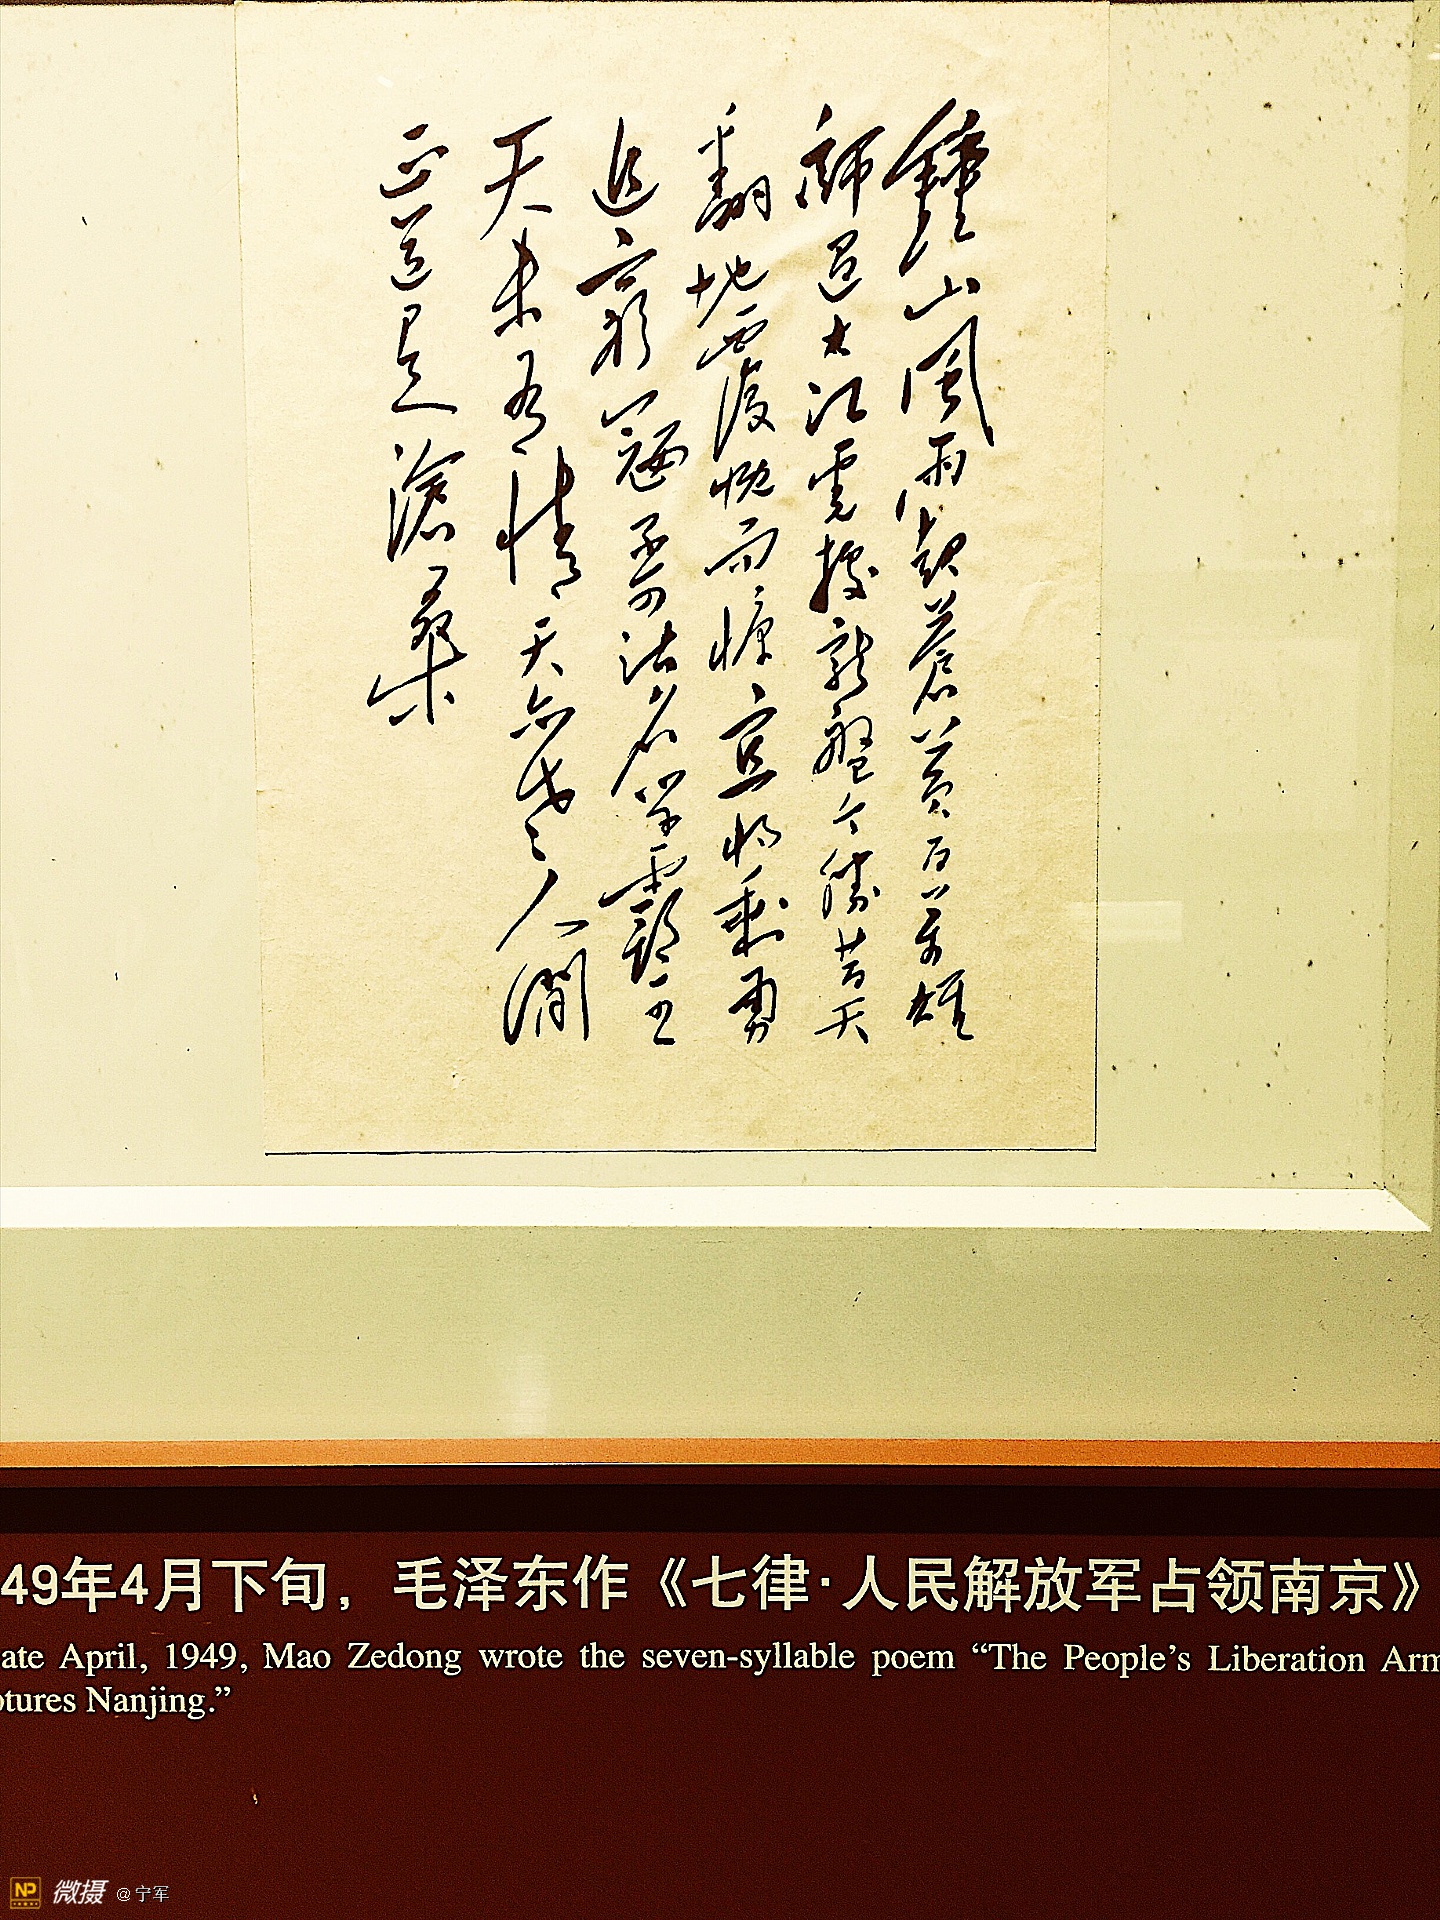 鐘山風雨起蒼黃百萬雄
師過大江虎據龍盤今勝昔天
翻地覆慨而慷宜將剩勇
追窮寇不可沽名學霸王
天未有情天亦老人間
正道是滄桑
49年4月下旬，毛泽东作《七律·人民解放军占领南京》
ate April, 1949, Mao Zedong wrote the seven-syllable poem “The People’s Liberation Arm
ptures Nanjing.”
NP 微摄 @宁军